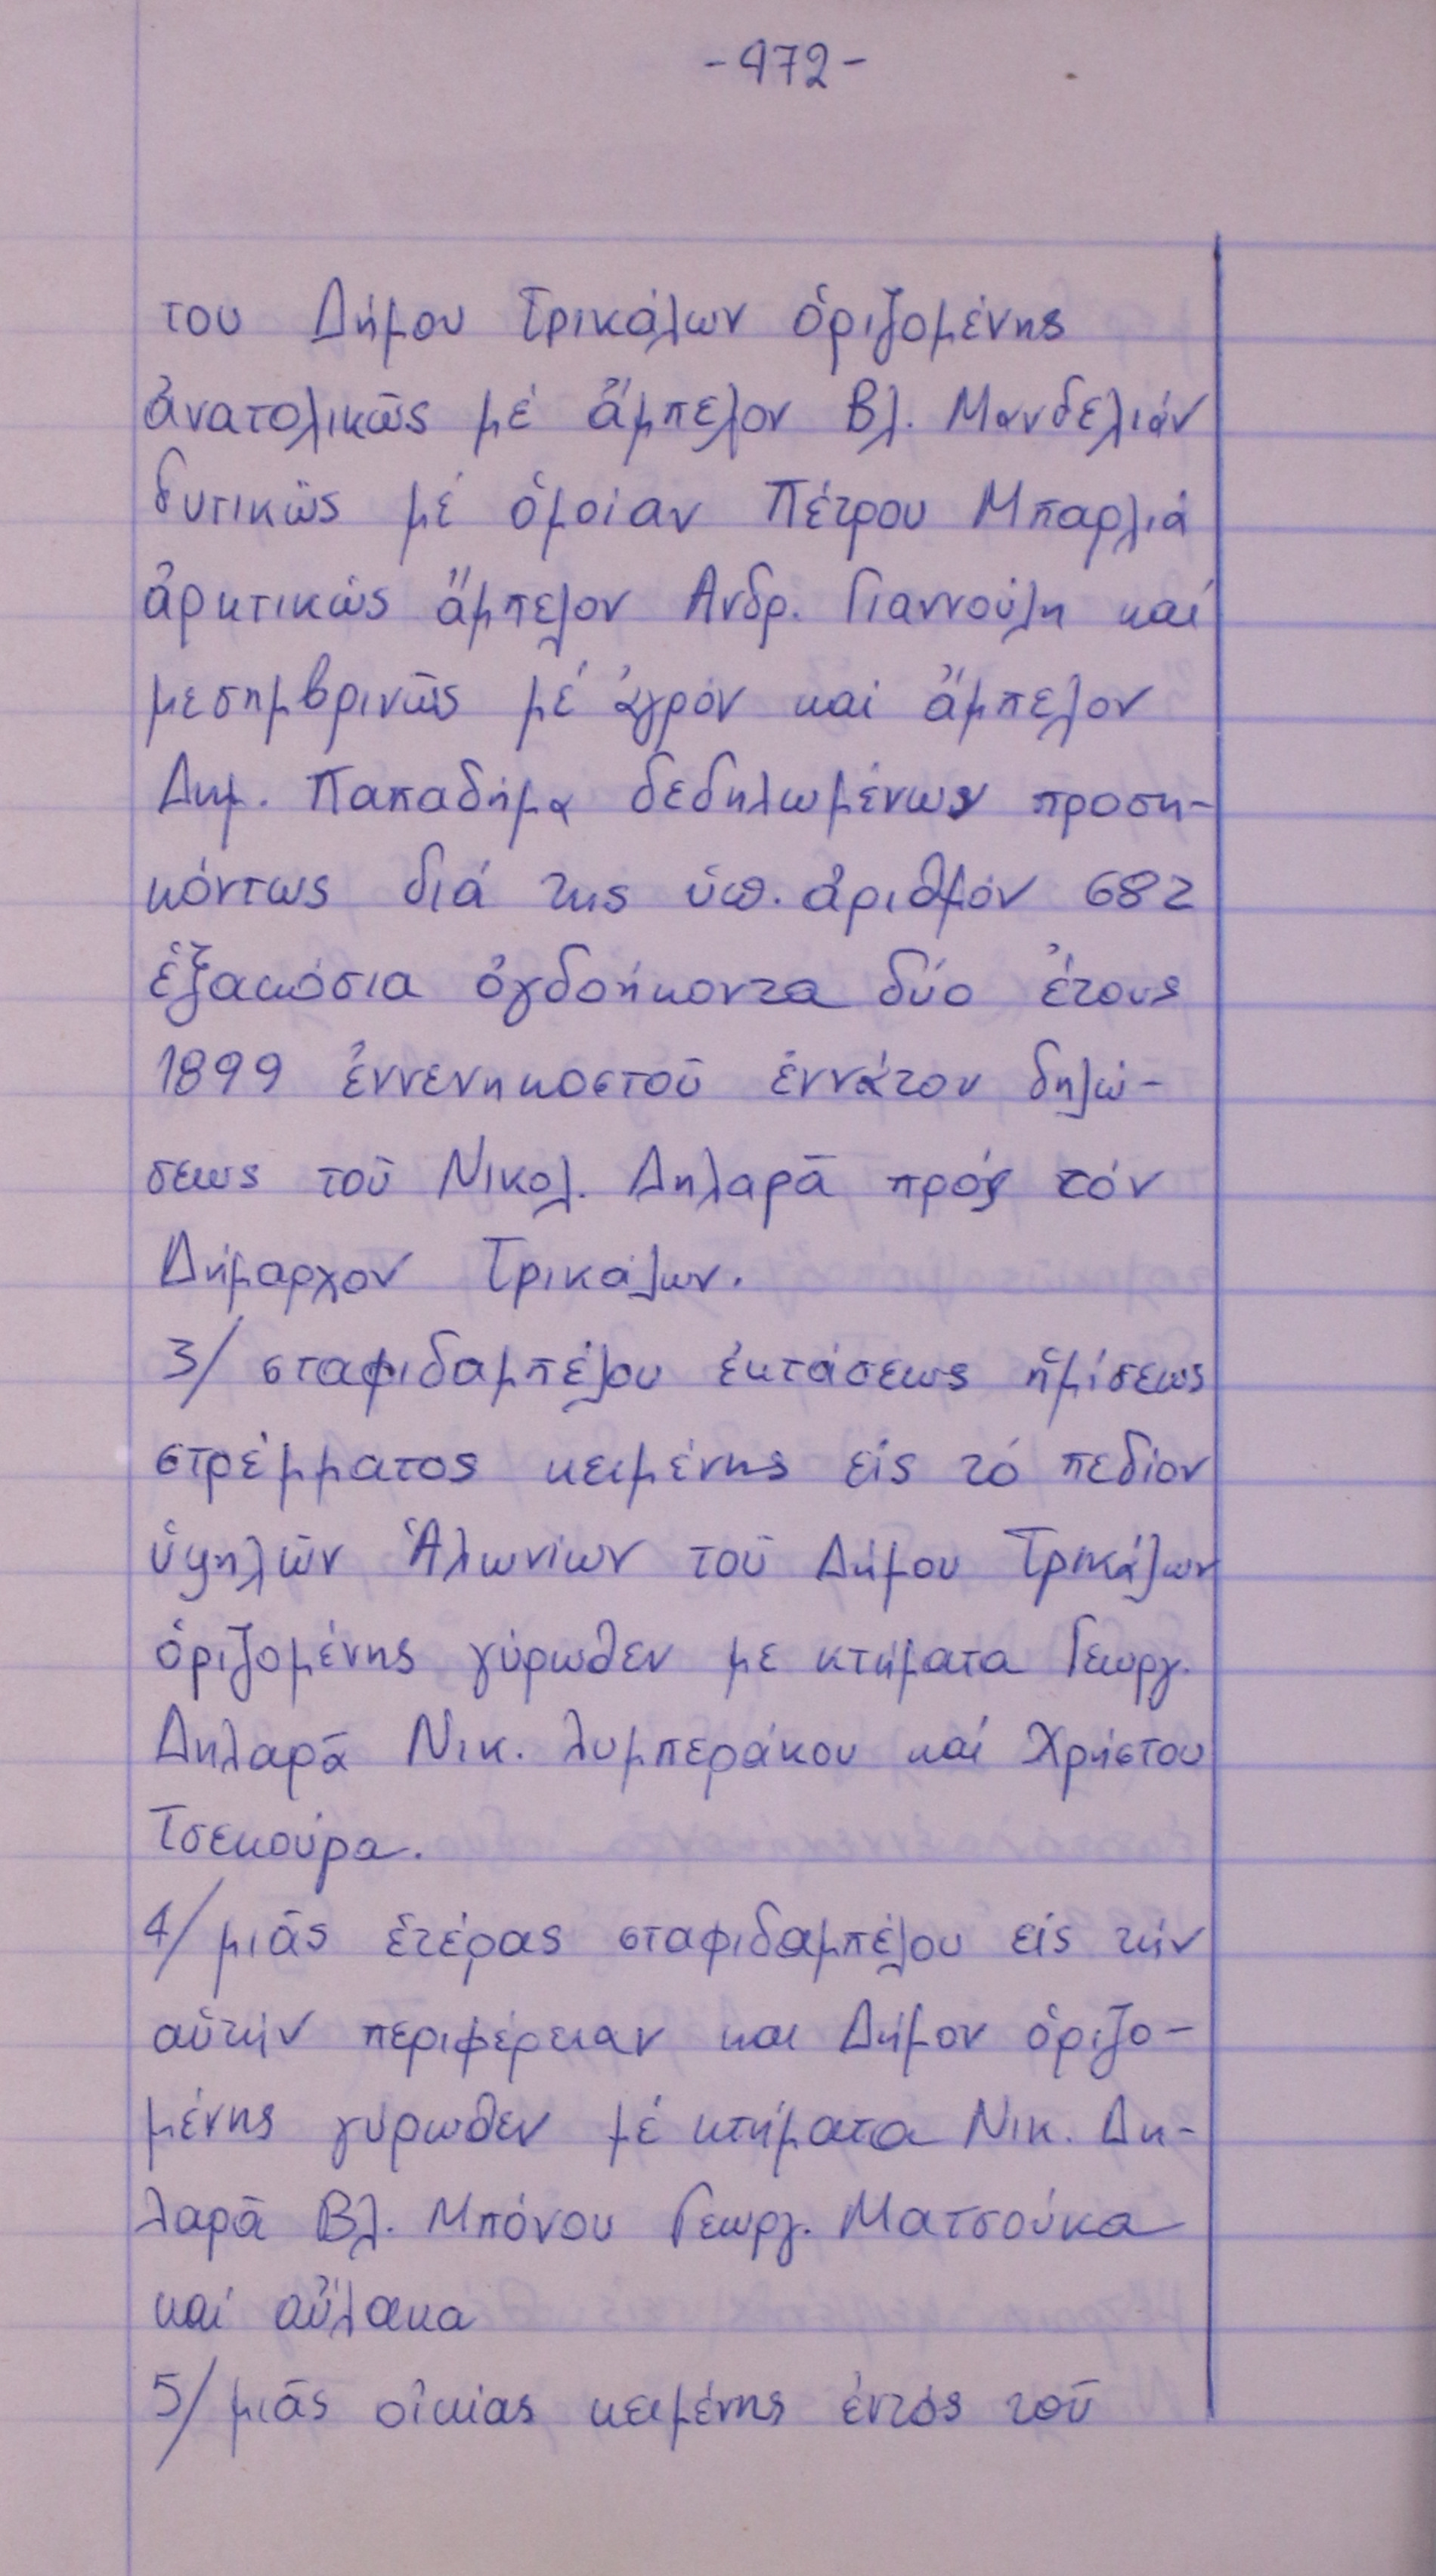 -472-
του Δήμου Τρικάλων ὁριζομένης
ἀνατολικῶς μέ ἄμπελον Βλ. Μανδελιάν
δυτικῶς μέ ὁμοίαν Πέτρου Μπαρλιά
ἀρκτικώς ἄμπελον Ανδρ. Γιαννούλη καί
μεσημβρινῶς μέ ἀγρόν καί ἄμπελον
Δημ. Παπαδήμα δεδηλωμένων προση-
κόντως διά της ὑπ. ἀριθμόν 682
ἑξακόσια ὀγδοήκοντα δύο ἔτους
1899 ἐννενηκοστοῦ ἐννάτου δηλώ-
σεως τοῦ Νικολ. Δηλαρᾶ πρός τόν
Δήμαρχον Τρικάλων.
3/ σταφιδαμπέλου ἐκτάσεως ἡμίσεως
στρέμματος κειμένης εἰς τό πεδίον
ὑψηλῶν Ἁλωνίων τοῦ Δήμου Τρικάλων
ὁριζομένης γύρωθεν με κτήματα Γεωργ.
Δηλαρᾶ Νικ. Λυμπεράκου καί Χρήστου
Τσεκούρα.
4/ μιᾶς ἑτέρας σταφιδαμπέλου εἰς τήν
αὐτήν περιφέρειαν και Δήμον ὁριζο-
μένης γύρωθεν μέ κτήματα Νικ. Δη-
λαρᾶ Βλ. Μπόνου Γεωργ. Ματσούκα
καί αὔλακα
5/ μιᾶς οἰκίας κειμένης ἐντός τοῦ